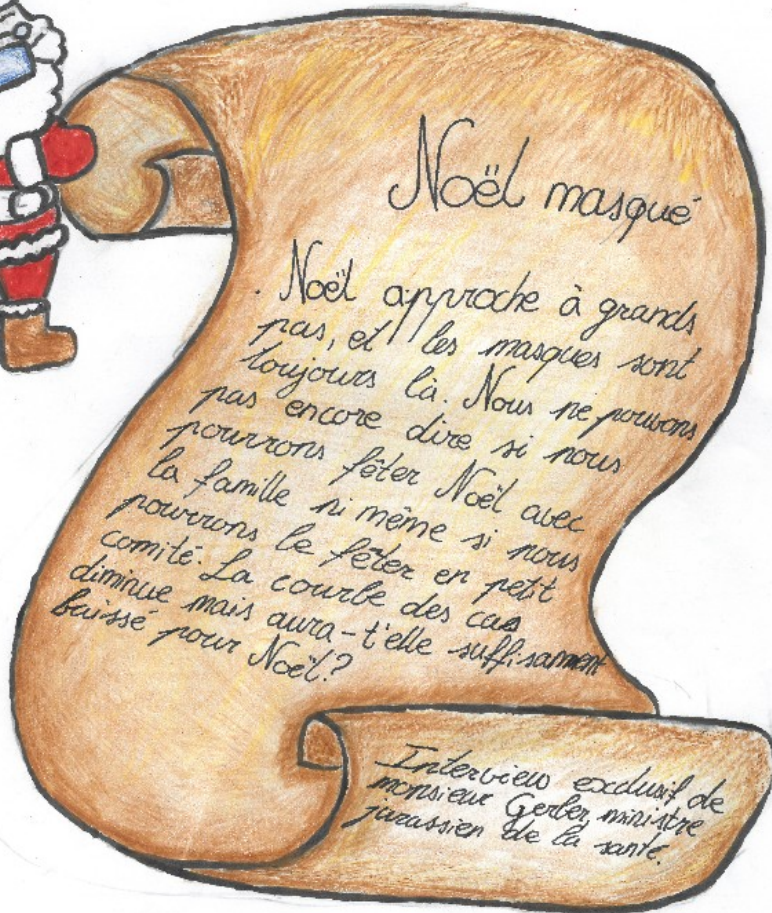 Noël masqué
. Noël approche à grands
pas, et les masques sont
toujours là. Nous ne pouvons
pas encore dire si nous
pourrons fêter Noël avec
la famille ni même si nous
pourrons le fêter en petit
comité. La courbe des cas
diminue mais aura-t'elle suffisamment
baissé pour Noël?
Interview exclusif de
monsieur Gerber, ministre
jurassien de la santé.